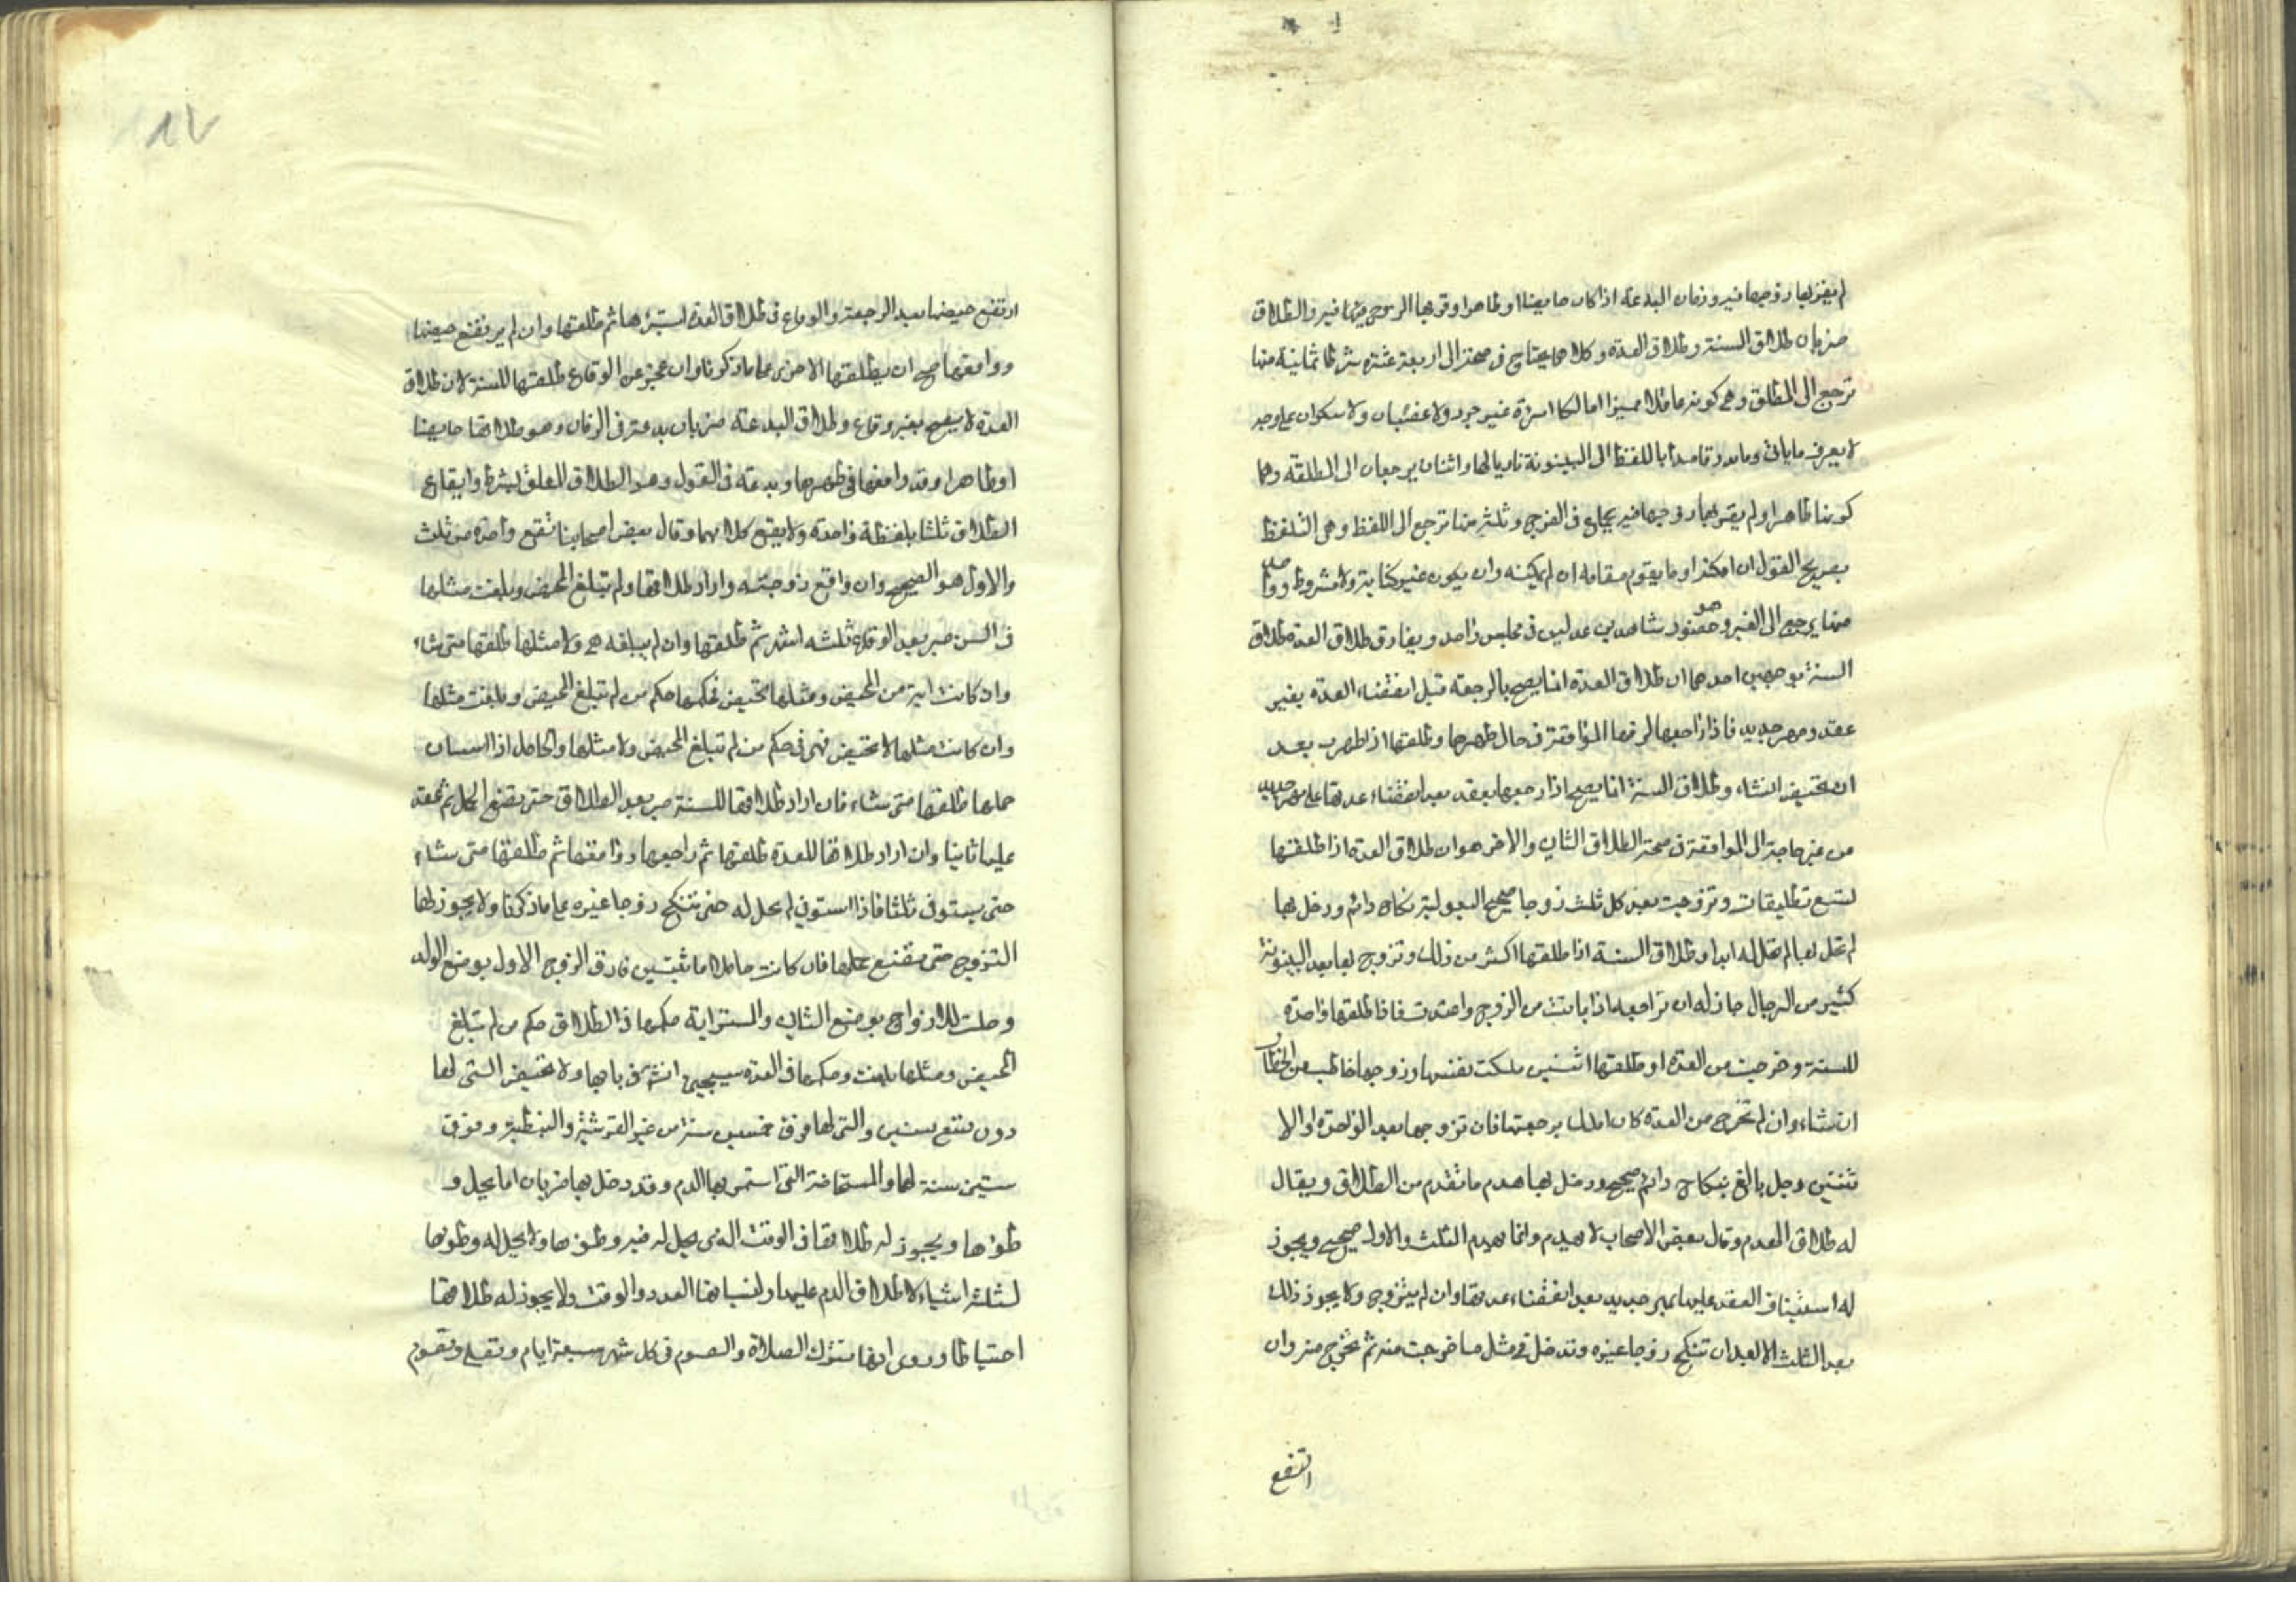 لم يقربها زوجها فيه وزمان البدعة اذا كان حايضا او طاهرا وقربها الزوج فيه والطلاق
ضربان طلاق السنة وطلاق العدة وكلاهما يحتاج في صحته الى اربعة عشرة شرطا ثمانية منها
ترجع الى المطلق وهي كونه عاقلا مميزا امالكا امراة غير حرد ولا غضبان ولا سكران على وجه
لا يعرف ما ياتي وما يدر قاصدا باللفظ الى البينونة ناويا لها واثنان يرجعان الى المطلقة وهما
كونها طاهرا ولم يقربها زوجها فيه بجماع في الفرج وثلثة منها ترجع الى اللفظ وهي التلفظ
بصريح القول ان امكنه او ما يقوم مقامه ان لم يمكنه وان يكون غير كناية ولا مشروط وواحد
منها يرجع الى الغير وهو حضور شاهدين عدلين في مجلس واحد ويفارق طلاق العدة طلاق
السنة بوجهين احدهما ان طلاق العدة انما يصح بالرجعة قبل انقضاء العدة بغير
عقد ومهر جديد فاذا راجعها لزمها المواقعة في حال طهرها وطلقها اذا طهرت بعد
ان تحيض انشاء وطلاق السنة انما يصح اذا رجعها بعقد بعد انقضاء عدتها على مهر جديد
من غير حاجة الى المواقعة في صحة الطلاق الثاني والاخر هو ان طلاق العدة اذا طلقها
لتسع تطليقات وتزوجت بعد كل ثلث زوجا صحيح البعولية نكاح دائم ودخل بها
لم تحل لها لم تحل له ابدا وطلاق السنة اذا طلقها اكثر من ذلك وتزوج لها بعد البينونة
كثير من الرجال جاز له ان تراجعه اذا بانت من الزوج واعتدت فاذا طلقها واحدة
للسنة وخرجت من العدة او طلقها اثنين ملكت نفسها وزوجها خاطب من الخطاب
ان شاء وان لم تخرج من العدة كان املك برجعتها فان تزوجها بعد الواحدة او الا
ثنتين رجل بالغ بنكاح دائم صحيح ودخل بها هدم ما تقدم من الطلاق ويقال
له طلاق الهدم وقال بعض الاصحاب لا يهدم وانما يهدم الثلث والاول صحيح ويجوز
له استيناف العقد عليها بمهر جديد بعد انقضاء عدتها وان لم يتزوج ولا يجوز ذلك
بعد الثلث الا بعد ان تنكح زوجا غيره وتدخل في مثل ما خرجت منه ثم تخرج منه وان
ارتفع
ارتفع حيضها بعد الرجعة والوقاع في طلاق العدة استبرءها ثم طلقها وان لم يرتفع حيضها
وواقعها صح ان يطلقها الاخرى على ما ذكرنا وان عجز عن الوقاع طلقها للسنة لان طلاق
العدة لا يصح بغير وقاع وطلاق البدعة ضربان بدعة في الزمان وهو طلاقها حايضا
او طاهرا وقد واقعها في طهرها وبدعة في القول وهو الطلاق المعلق بشرط وايقاع
الطلاق ثلثا بلفظة واحدة ولا يقع كلاهما وقال بعض اصحابنا تقع واحدة من ثلث
والاول هو الصحيح وان واقع زوجته واراد طلاقها ولم تبلغ المحيض وبلغت مثلها
في السن صبر بعد الوقاع ثلثه اشهر ثم طلقها وان لم يبلغه هي ولا مثلها طلقها متى شاء
وان كانت ايسة من المحيض ومثلها تحيض فحكمها حكم من لم تبلغ المحيض وبلغت مثلها
وان كانت مثلها لا تحيض فهي في حكم من لم تبلغ المحيض ولا مثلها والحامل اذا استبان
حملها طلقها متى شاء فان اراد طلاقها للسنة صبر بعد الطلاق حتى تضع الحمل ثم تعقد
عليها ثانيا وان اراد طلاقها للعدة طلقها ثم راجعها وواقعها ثم طلقها متى شاء
حتى يستوفي ثلثا فاذا استوفى لم يحل له حتى تنكح زوجا غيره على ما ذكرنا ولا يجوز لها
التزويج حتى تضع حملها فان كانت حاملا باثنين فارق الزوج الاول بوضع الولد
وحلت للازواج بوضع الثاني والمسترابة حكمها في الطلاق حكم من لم تبلغ
المحيض ومثلها بلغت وحكمها في العدة سيجيئ انش في بابها ولا تحيض التي لها
دون تسع سنين والتي لها فوق خمسين سنة من غير القرشية والنبطية وفوق
ستين سنة لها والمستحاضة التي استمر بها الدم وقد دخل بها ضربان اما يحل و
طؤها ويجوز له طلاقها في الوقت الذي يحل له فيه وطؤها ولا يحل له وطؤها
لثلثة اشياء لاطلاق الدم عليها ولنسيانها العدد والوقت ولا يجوز له طلاقها
احتياطا وروى انها تترك الصلاة والصوم في كل شهر سبعة ايام وتصلي وتصوم